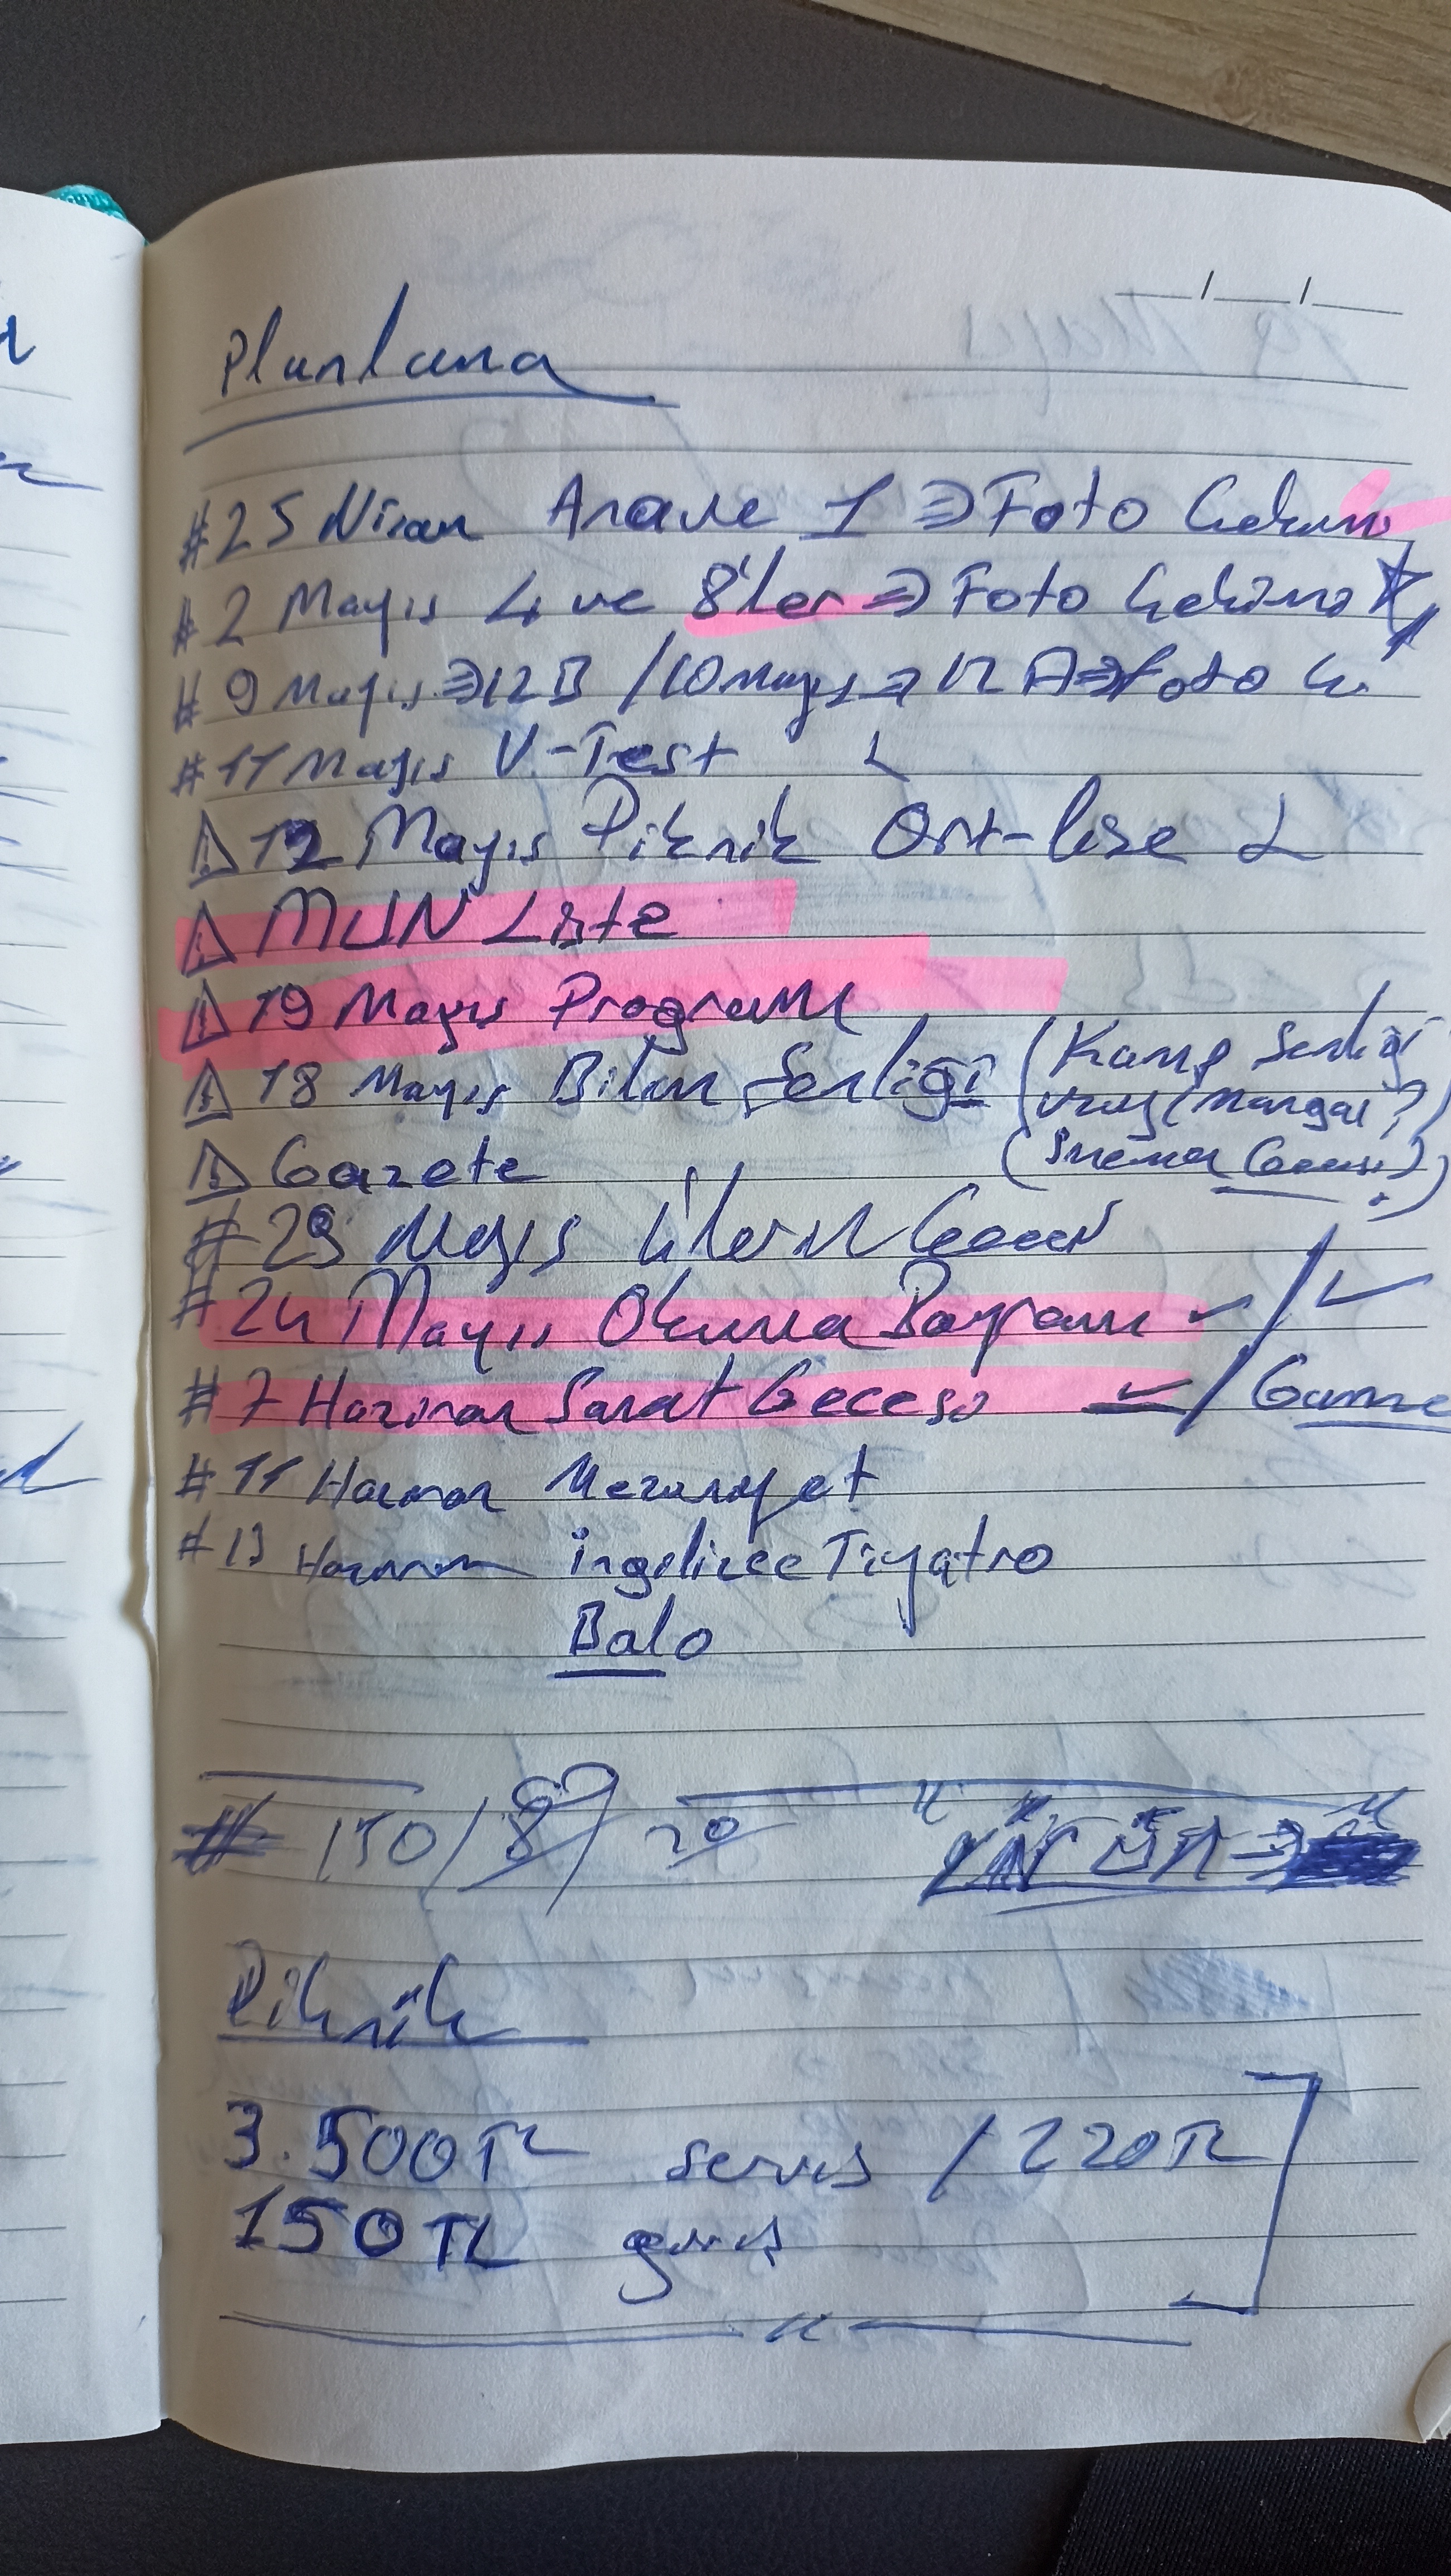 Planlama
#25 Nisan Anave 1 ⇒ Foto Çekimi
#2 Mayıs 4 ve 8'ler ⇒ Foto Çekimi
#9 Mayıs ⇒ 12B / 10 Mayıs ⇒ 12 A ⇒ Foto Ç.
#11 Mayıs V-Test
⚠ 12 Mayıs Piknik Ort-lise
⚠ MUN Liste
⚠ 19 Mayıs Programı
⚠ 18 Mayıs Bilim Şenliği (Kamp Şenliği
(Mangal?)
(Sinema Gecesi?)
⚠ Gazete
#23 Mayıs 4'lerin Gecesi
#24 Mayıs Okuma Bayramı ✓ / ✓
#7 Haziran Sanat Gecesi ✓ / Gamze
#11 Haziran Mezuniyet
#13 Haziran ingilizce Tiyatro
Balo
# 150/8/ 20
Piknik
3.500TL servis / 220TL
150TL giriş